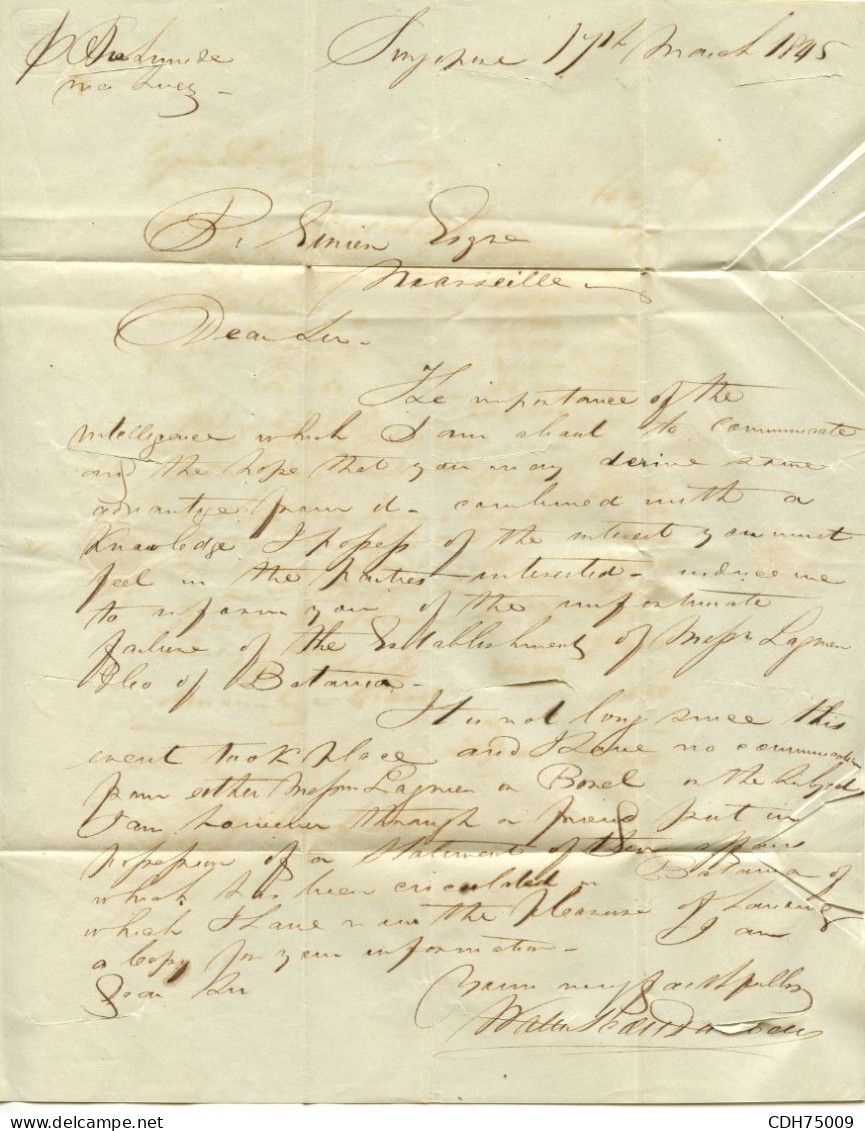 Singapore 17th March 1845
via Suez -
P. Esqre
Marseille -
Dear Sir -
The importance of the
intelligence which I am about to communicate
and the hope that you may derive some
advantage from it - combined with a
Knowledge I possess of the interest you must
feel in the parties interested - induce me
to inform you of the unfortunate
failure of the Establishment of Messrs Lagnier
& Co of Batavia -
It is not long since this
event took place and I have no communication
from either Messrs Lagnier or Borel on the subject
I am however through a friend put in
possession of a statement of their affairs
which has been circulated in Batavia of
which I have now the pleasure of handing
a Copy for your information - I am
Dear Sir
Yours very faithfully
Walter Scott
CDH75009